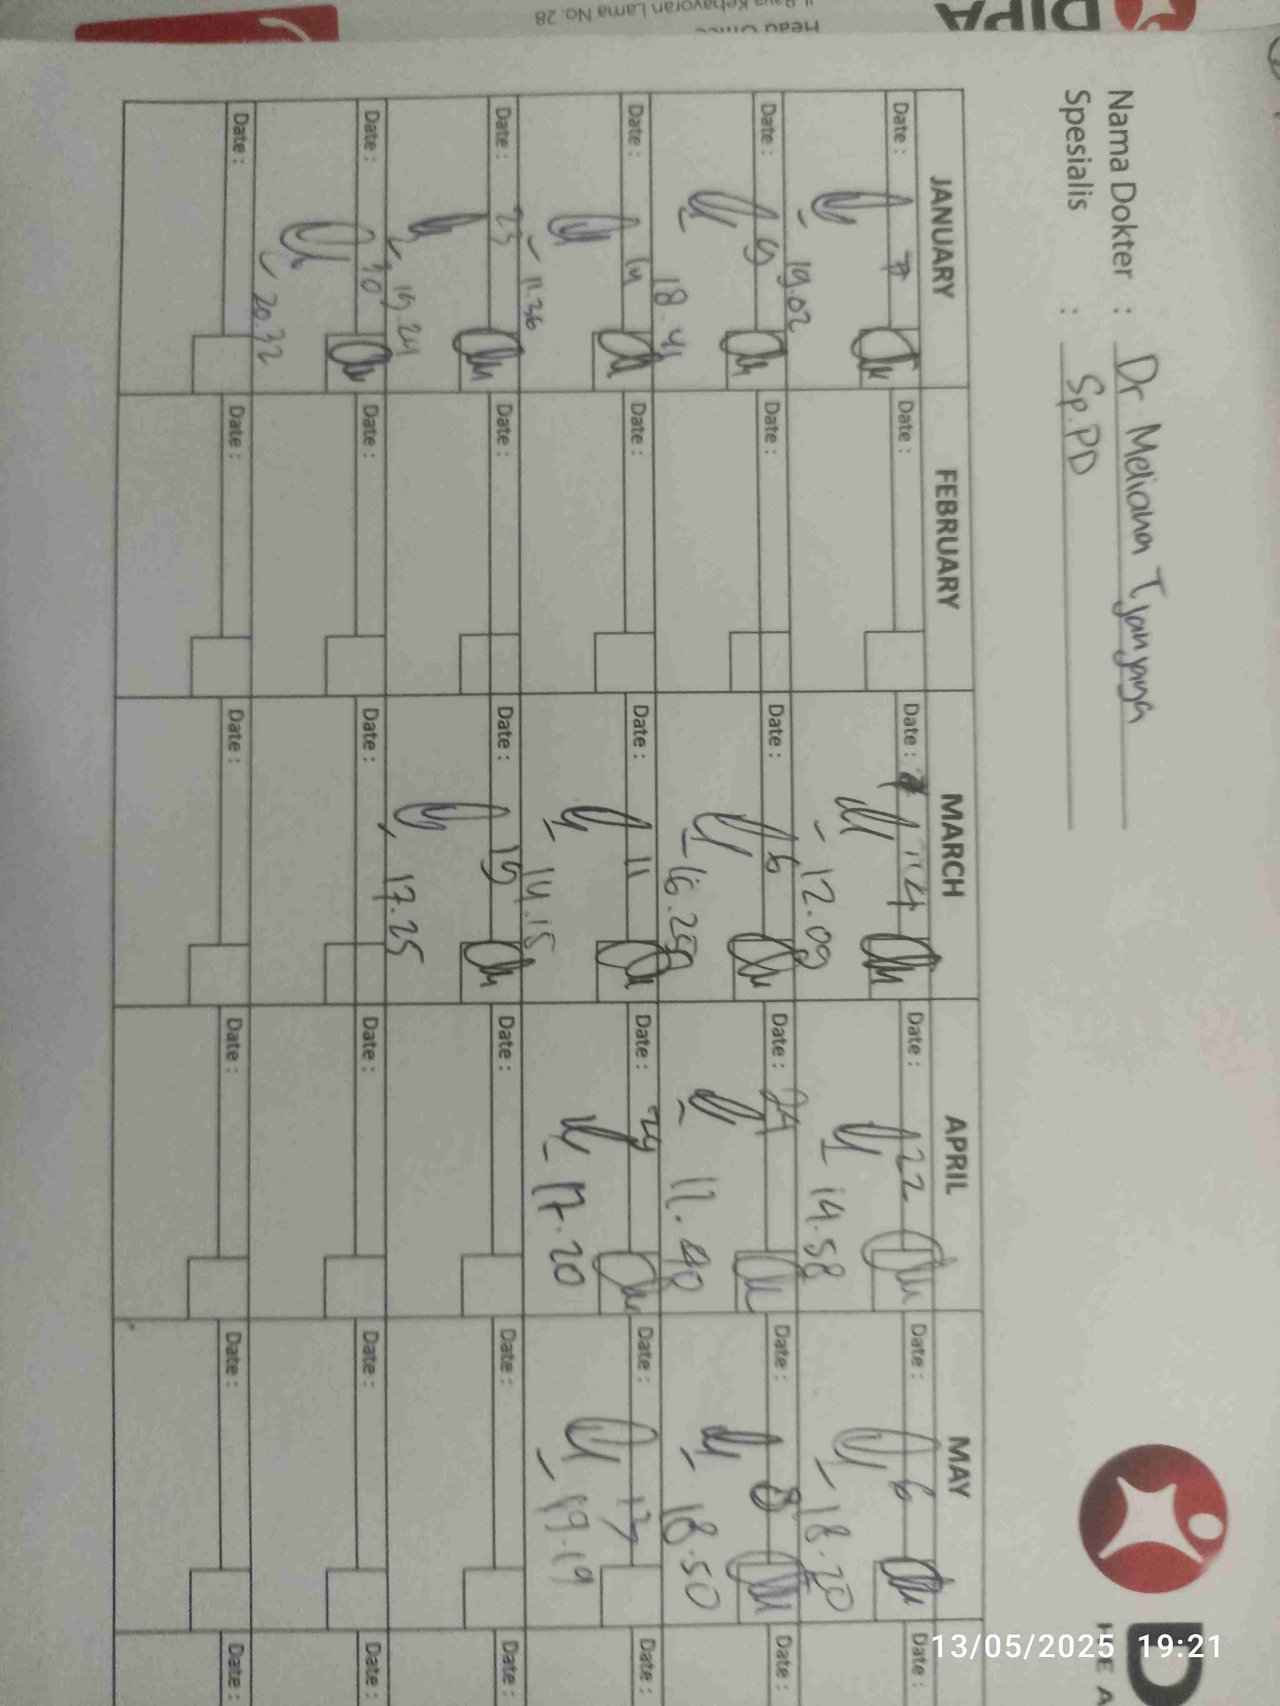 Nama Dokter : Dr Meliana Tjanyaya
Spesialis : Sp.PD
JANUARY FEBRUARY MARCH APRIL MAY
Date : 7 Date : Date : 4 Date : 22 Date : 6 Date :
19.02 12.09 14.58 18.20
Date : 9 Date : Date : 6 Date : 24 Date : 8 Date :
18.41 16.25 18.50
Date : 14 Date : Date : 11 Date : 29 Date : 13 Date :
11.36 14.15 17.20 19.19
Date : 23 Date : Date : 19 Date : Date : Date :
19.24 17.25
Date : 30 Date : Date : Date : Date : Date :
20.32
Date : Date : Date : Date : Date : Date :
DIPA
Head Office
Kebayoran Lama No. 28
D
13/05/2025 19:21